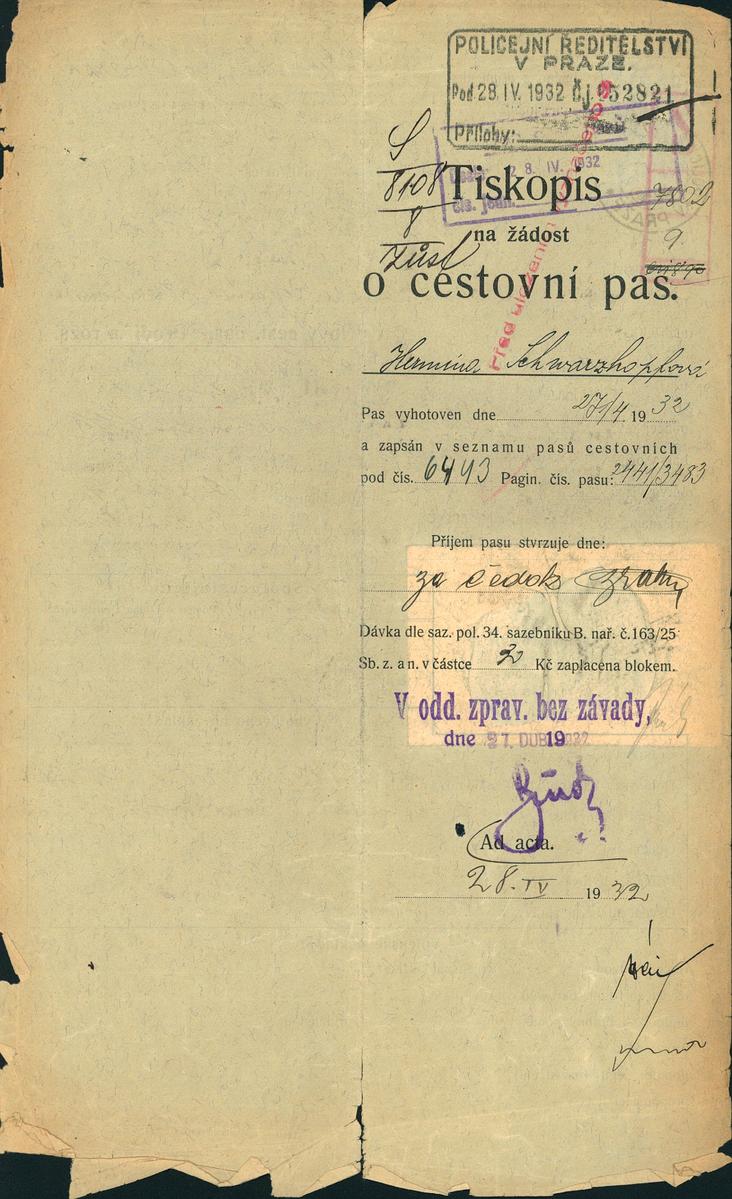 POLICEJNÍ ŘEDITELSTVÍ
V PRAZE.
Pod 28. IV. 1932 Čj. 952821
Přílohy:
28. IV. 1932
čís. jedn.
S
8108
8
Tiskopis
7802
na žádost
9.
o cestovní pas.
Před uložením
Hermina Schwarzkopfová
Pas vyhotoven dne 27/4 1932
a zapsán v seznamu pasů cestovních
pod čís. 6443 Pagin. čís. pasu: 2441/3483
Příjem pasu stvrzuje dne:
za Čedok
Dávka dle saz. pol. 34. sazebníku B. nař. č. 163/25
Sb. z. a n. v částce 2 Kč zaplacena blokem.
V odd. zprav. bez závady,
dne 27. DUB. 1932
Ad acta.
28. IV 1932